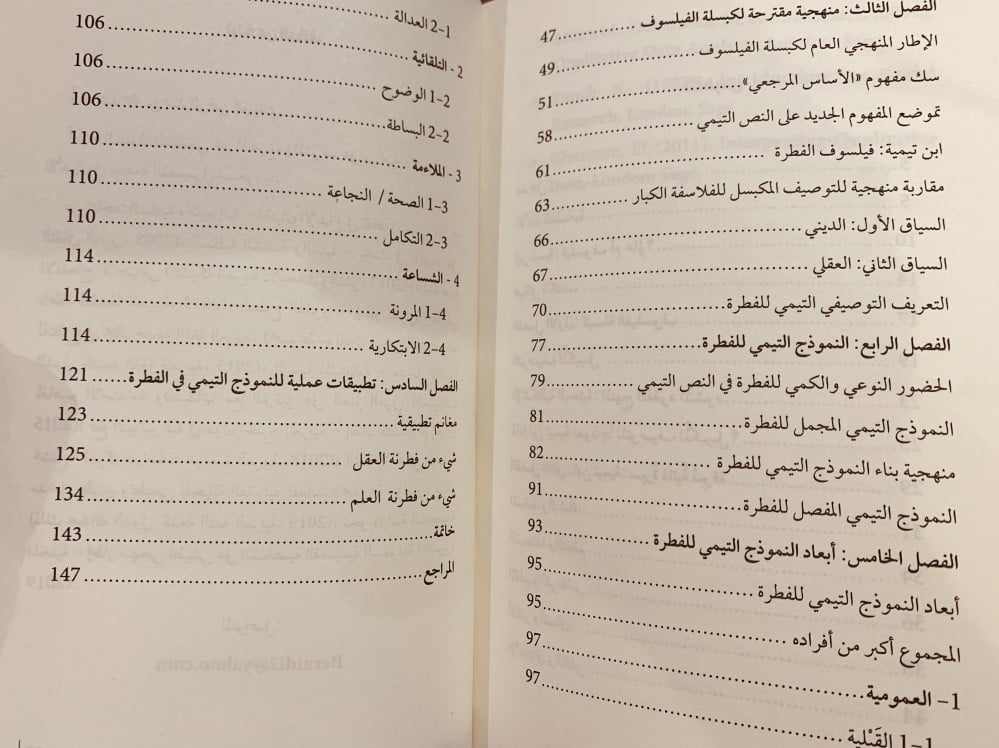 الفصل الثالث: منهجية مقترحة لكبسلة الفيلسوف ........ 47
الإطار المنهجي العام لكبسلة الفيلسوف ........ 49
سك مفهوم «الأساس المرجعي» ........ 51
تموضع المفهوم الجديد على النص التيمي ........ 58
ابن تيمية: فيلسوف الفطرة ........ 61
مقاربة منهجية للتوصيف المكبسل للفلاسفة الكبار ........ 63
السياق الأول: الديني ........ 66
السياق الثاني: العقلي ........ 67
التعريف التوصيفي التيمي للفطرة ........ 70
الفصل الرابع: النموذج التيمي للفطرة ........ 77
الحضور النوعي والكمي للفطرة في النص التيمي ........ 79
النموذج التيمي المجمل للفطرة ........ 81
منهجية بناء النموذج التيمي للفطرة ........ 82
النموذج التيمي المفصل للفطرة ........ 91
الفصل الخامس: أبعاد النموذج التيمي للفطرة ........ 93
أبعاد النموذج التيمي للفطرة ........ 95
المجموع أكبر من أفراده ........ 95
1- العمومية ........ 97
1-1 القَبْلية ........ 97
2-1 العدالة ........
2- التلقائية ........ 106
1-2 الوضوح ........ 106
2-2 البساطة ........ 106
3- الملاءمة ........ 110
1-3 الصحة / النجاعة ........ 110
2-3 التكامل ........ 110
4- الشساعة ........ 114
1-4 المرونة ........ 114
2-4 الابتكارية ........ 114
الفصل السادس: تطبيقات عملية للنموذج التيمي في الفطرة ...... 121
مغانم تطبيقية ........ 123
شيء من فطرنة العقل ........ 125
شيء من فطرنة العلم ........ 134
خاتمة ........ 143
المراجع ........ 147